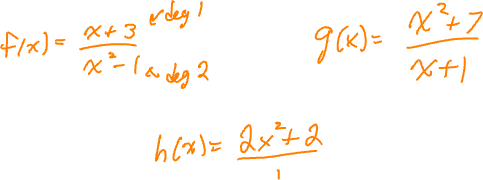 f(x) = (x + 3)/(x² - 1) deg 1 deg 2
g(x) = (x² + 7)/(x + 1)
h(x) = (2x² + 2)/1